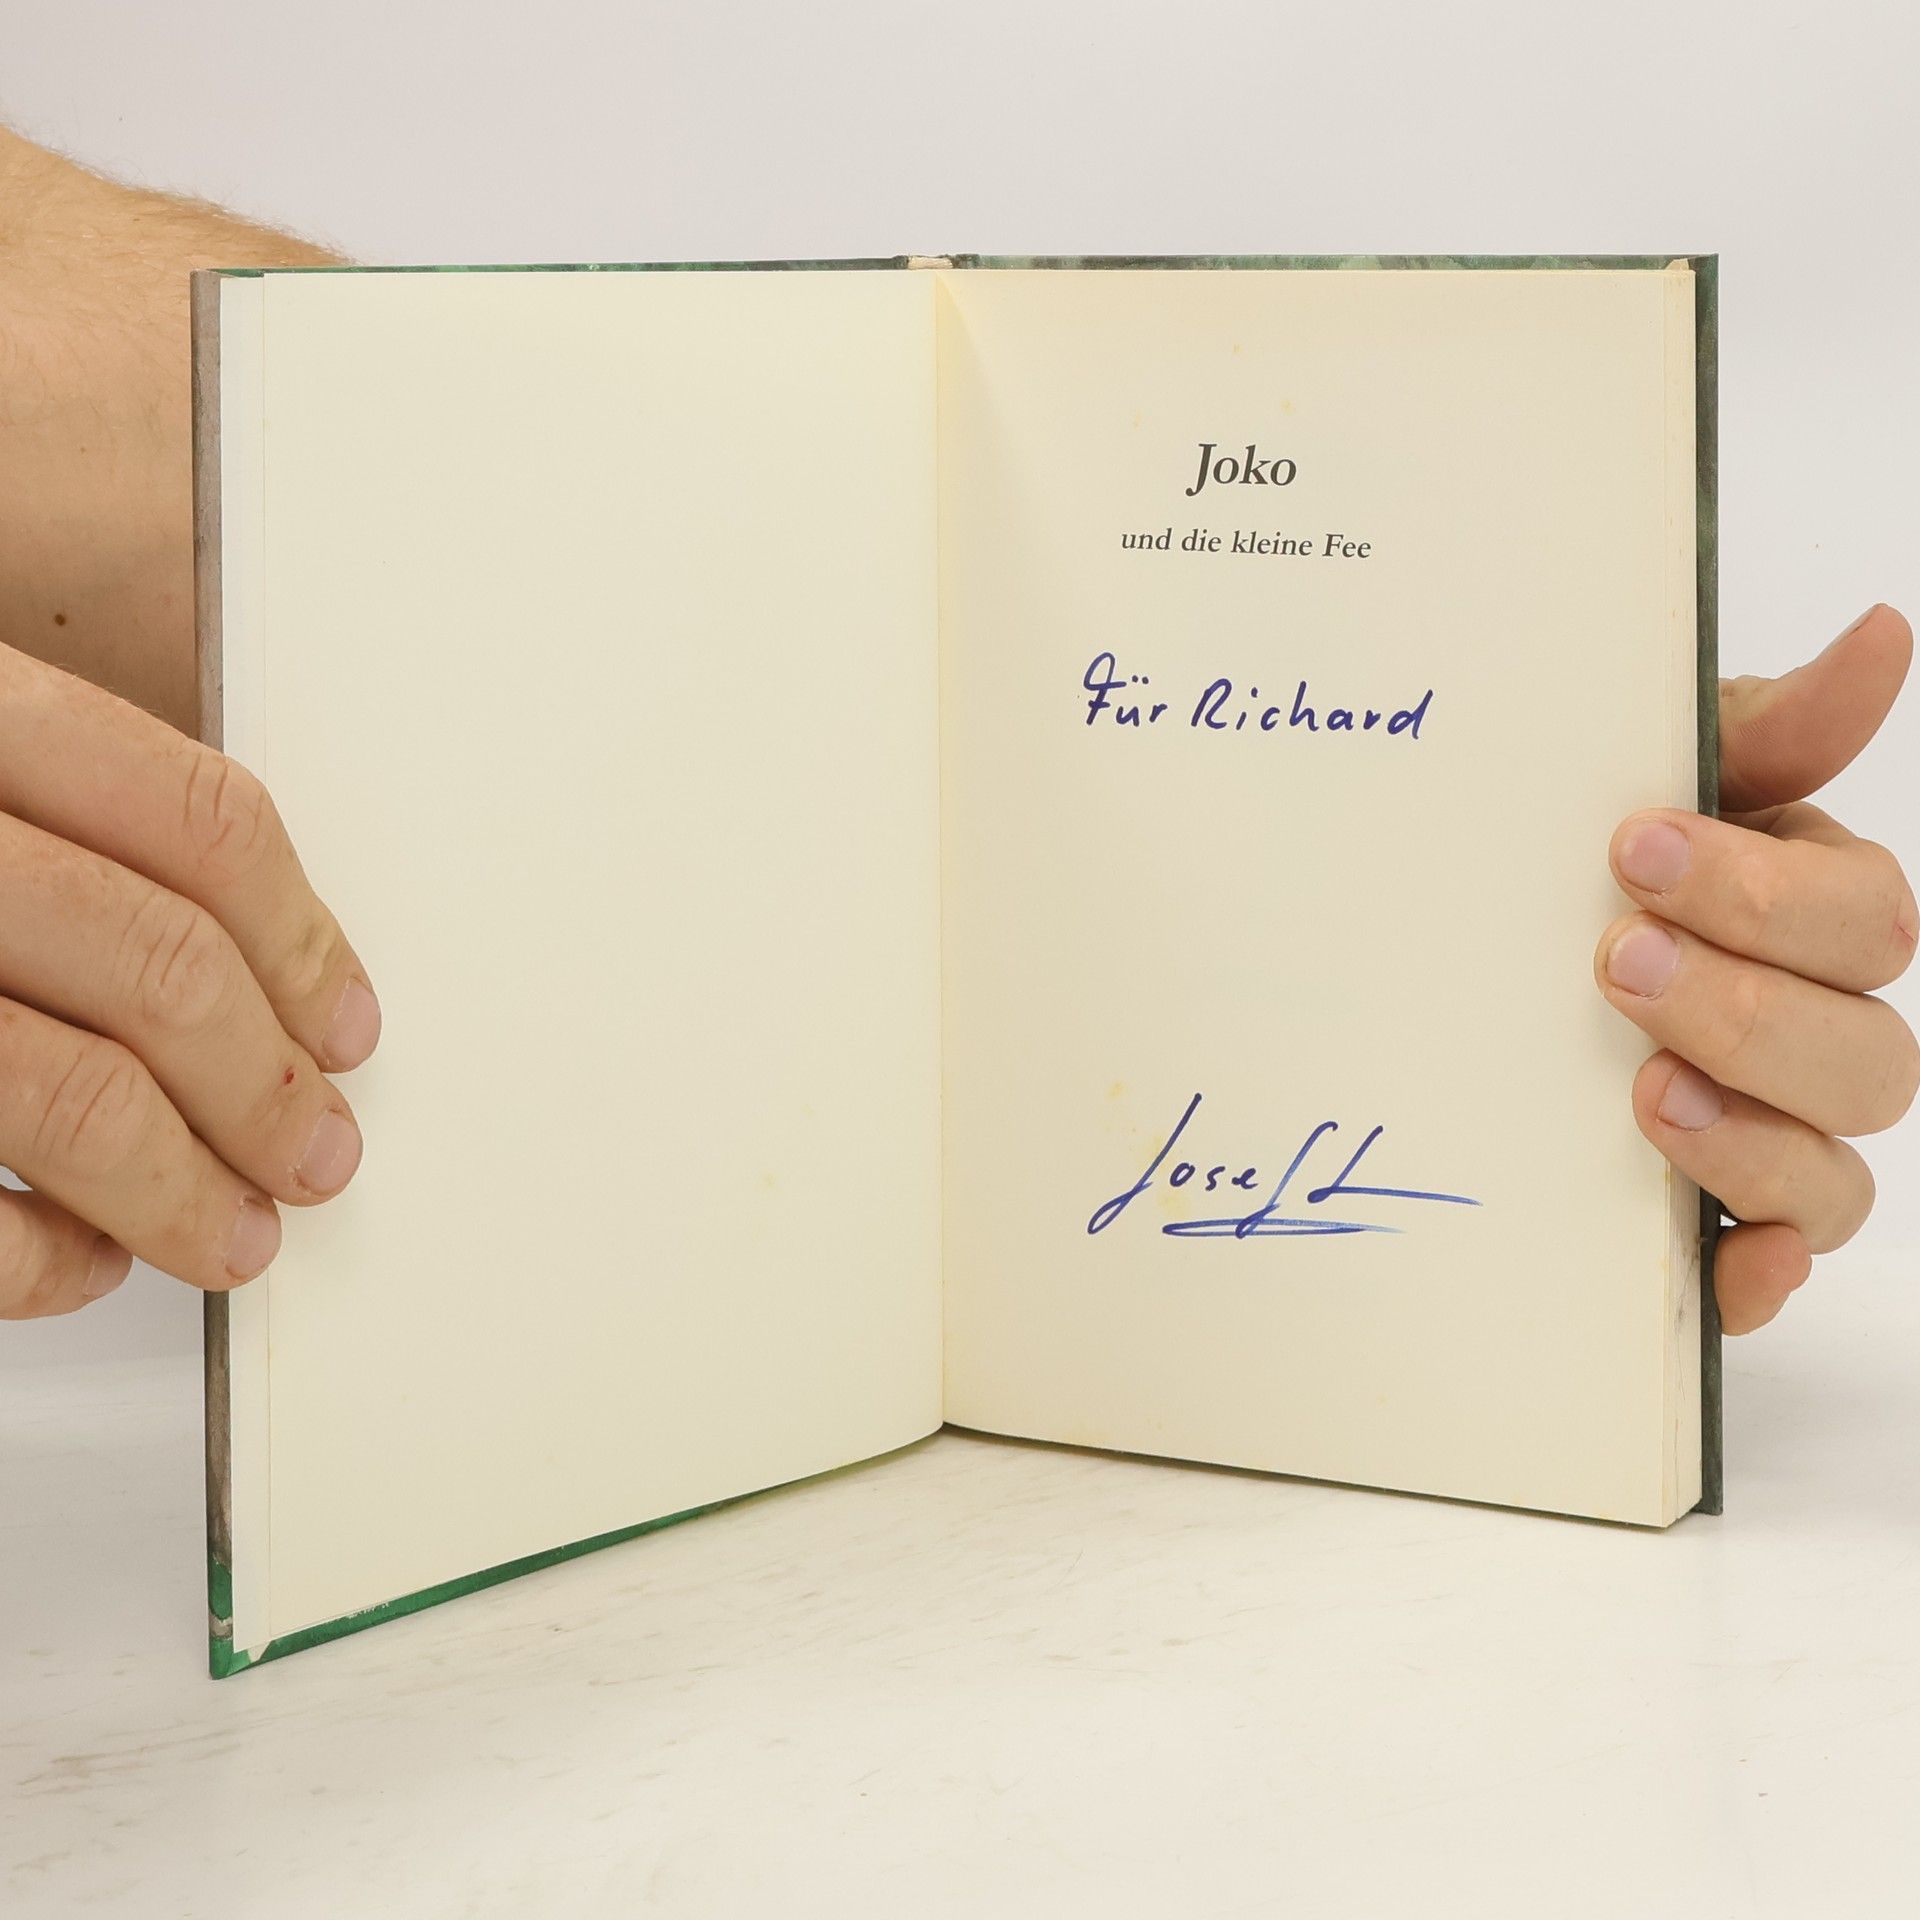 Joko
und die kleine Fee
Für Richard
Josef L